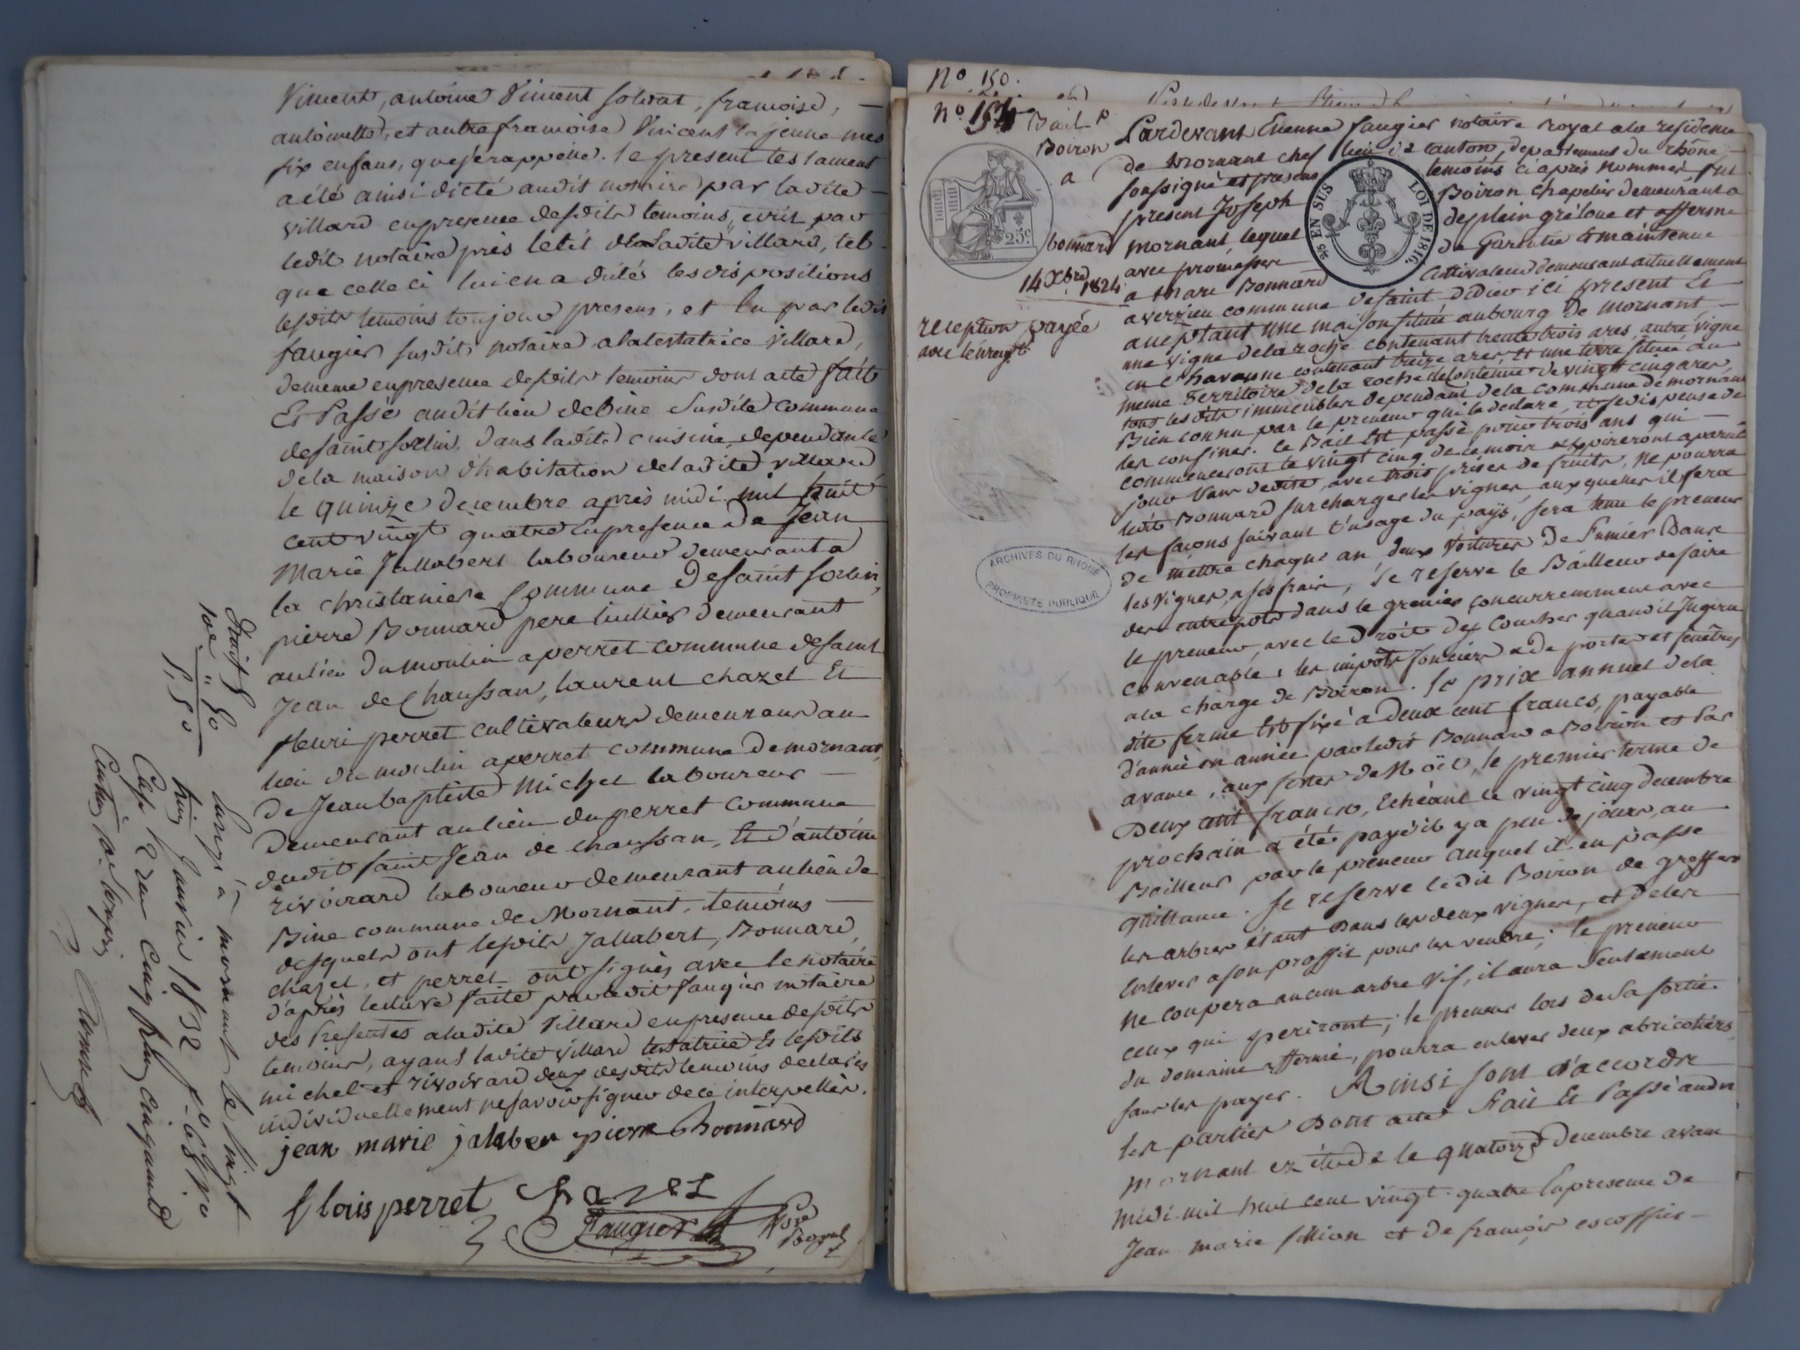 Viment, antoine Viment soldat, francoise,
antoinette, et autre francoise Vincent la jeune mes
six enfans, que je rappelle. le present testament
a été ainsi dicté audit notaire par ladite
villard en presence desdits temoins, ecrit par
ledit notaire près le lit de ladite villard, tel
que celle ci lui en a dictés les dispositions
lesdits temoins toujours presens, et lu par ledit
faugier susdit notaire a la testatrice villard,
de meme en presence desdits temoins dont acte fait
Et Passé audit lieu de Bine susdite commune
de saint sorlin dans ladite cuisine dependante
de la maison d'habitation de ladite villard
le quinze decembre après midi mil huit
cent vingt quatre En presence de Jean
Marie Jallabert laboureur demeurant a
la christaniere commune de saint sorlin,
pierre Bonnard pere tuilier demeurant
au lieu du moulin a perret commune de saint
Jean de Chaussan, laurent chazet Et
fleuri perret cultivateurs demeurans au
lieu du moulin a perret commune de mornant,
de Jean baptiste Michel laboureur
demeurant au lieu du perret commune
dudit saint Jean de chaussan, Et d'antoine
rivoirard laboureur demeurant au lieu de
Bine commune de Mornant, temoins
desquels ont lesdits Jallabert, Bonnard,
chazet, et perret ont signés avec le notaire
d'après lecture faite par ledit faugier notaire
des Presentes a ladite Villard en presence desdits
temoins, ayans ladite villard testatrice Et lesdits
michel et rivoirard deux desdits temoins declarés
individuellement ne savoir signer de ce interpellés.
jean marie jalaber pierre Bonnard
flouis perret Chazet
Faugier
Nre
Royal
Droit 5
10e " 50
5,50
Enregé à mornant le vingt
huit Janvier 1832 fo 68 Vo
Case 2 reçu cinq francs cinquante
Centimes
No 150.
No 151
Bail Pr
Boiron
a
bonnard
14 Xbre 1824
reception payée
avec l'enregt
25c
25 EN SUS
LOI DE 1816.
ARCHIVES DU RHÔNE
PROPRIÉTÉ PUBLIQUE
Pardevant Etienne faugier notaire royal a la residence
de Mornant chef lieu de canton, departement du rhône
soussigné et presens temoins ci après nommés fut
present Joseph Boiron chapelier demeurant a
mornant, lequel de plein gré loue et afferme
avec promesse de Garantie Et maintenue
a Marc Bonnard cultivateur demeurant actuellement
a verzieu commune de saint didier ici present Et
acceptant une maison située au bourg de mornant
une vigne de la roche contenant trente trois ares, autre vigne
en l'havanne contenant treize ares, Et une terre située au
meme territoire de la roche de Contenue de vingt cinq ares,
tous lesdits immeubles dependant de la commune de mornant
Bien connu par le preneur qui le declare, et se dispense de
les confiner. Ce Bail Est passé pour trois ans qui
commenceront le vingt cinq decemoir et expireront a pareil
jour l'an devire, avec trois prises de fruits, Ne pourra
ledit Bonnard surcharger les vignes auxquelles il fera
les façons suivant l'usage du pays, sera tenu le preneur
de mettre chaque an deux voitures de Fumier Dans
les vignes, a ses frais, se reserve le Bailleur de faire
des entrepots dans le grenier concurremment avec
le preneur, avec le droits d'y coucher quand il Jugera
convenable; les impots fonciers & de portes et fenêtres
a la charge de Boiron. Le prix annuel de la
dite ferme Est fixé a Deux cent francs, payable
d'année en année par ledit Bonnard a Boiron et par
avance, aux fetes de Noël, le premier terme de
Deux cent francs, Echéant le vingt cinq decembre
prochain a été payé il y a peu de jours, au
Bailleur par le preneur auquel il en passe
quittance. Se reserve ledit Boiron de greffer
les arbres étant Dans les deux vignes, et de les
enlever a son proffit pour les vendre; le preneur
ne coupera aucun arbre vif, il aura seulement
ceux qui periront; le preneur lors de sa sortie
du domaine affermé, pourra enlever deux abricotiers,
sans les payer. Ainsi sont d'accorde
les parties Dont acte Fait Et Passé audit
mornant en étude le quatorze decembre avant
midi mil huit cent vingt quatre En presence de
Jean marie fillion et de françois escoffier